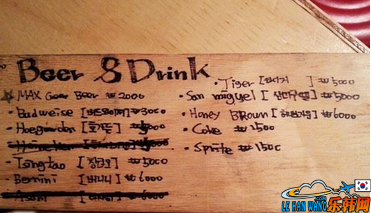 Beer & Drink
☆ MAX Cream Beer ₩2000
• Budweise [버드와이저] ₩3000
• Hoegaarden [호가든] ₩5000
• Tsingtao [칭다오] ₩5000
Bernini [버니니] ₩6000
• Tiger [타이거] ₩5000
• San miguel [산미구엘] ₩5000
• Honey Brown [허니브라운] ₩6000
• Coke ₩1500
• Sprite ₩1500
LE HAN WANG 乐韩网